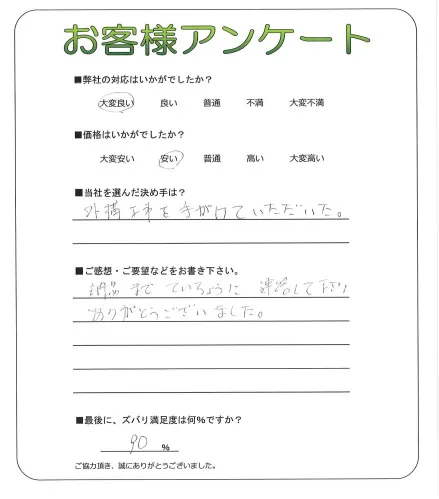 お客様アンケート
■弊社の対応はいかがでしたか?
大変良い 良い 普通 不満 大変不満
■価格はいかがでしたか?
大変安い 安い 普通 高い 大変高い
■当社を選んだ決め手は?
外構工事を手がけていただいた。
■ご感想・ご要望などをお書き下さい。
納品までていちょうに連絡して下さり
ありがとうございました。
■最後に、ズバリ満足度は何%ですか?
90 %
ご協力頂き、誠にありがとうございました。